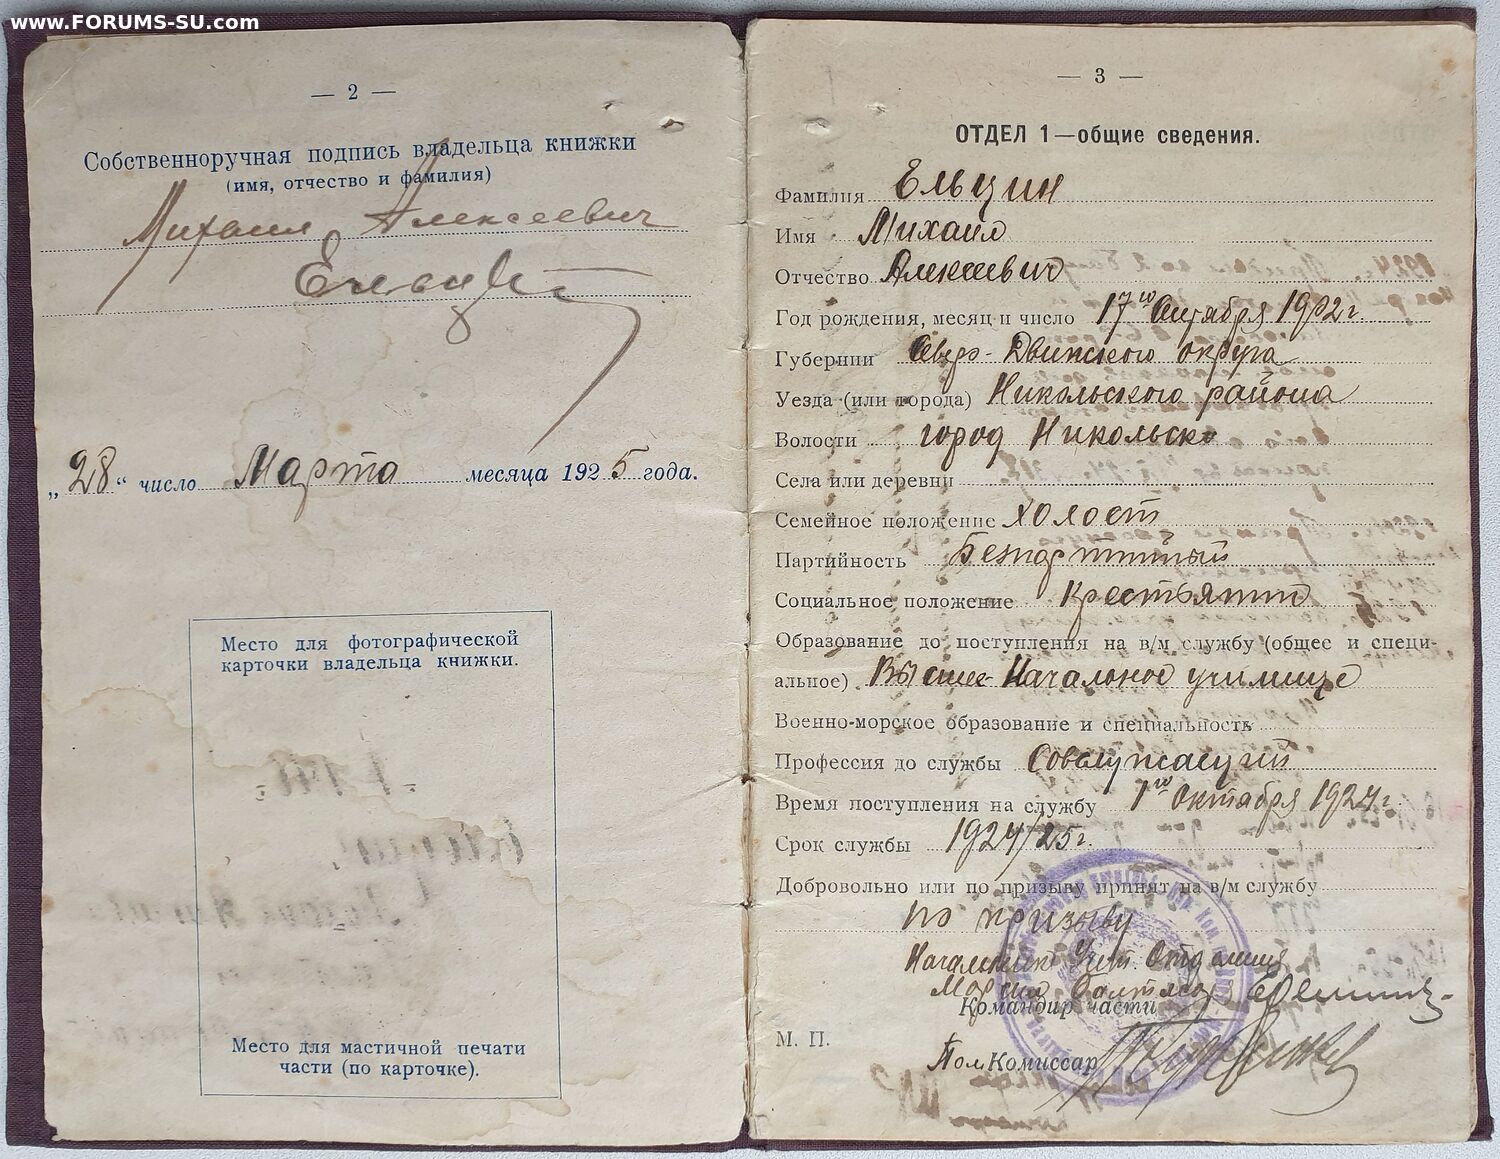 www.FORUMS-SU.com
— 2 —
Собственноручная подпись владельца книжки
(имя, отчество и фамилия)
Михаил Алексеевич
Ельцин
„28“ число Марта месяца 1925 года.
Место для фотографической
карточки владельца книжки.
Место для мастичной печати
части (по карточке).
— 3 —
ОТДЕЛ 1—общие сведения.
Фамилия Ельцин
Имя Михаил
Отчество Алексеевич
Год рождения, месяц и число 17го Октября 1902 г.
Губернии Северо-Двинского округа
Уезда (или города) Никольского района
Волости город Никольск
Села или деревни
Семейное положение холост
Партийность Безпартийный
Социальное положение Крестьянин
Образование до поступления на в/м службу (общее и специ-
альное) Высше-Начальное училище
Военно-морское образование и специальность
Профессия до службы Совслужащий
Время поступления на службу 1го Октября 1924 г.
Срок службы 1924/25 г.
Добровольно или по призыву принят на в/м службу
по призыву
Начальник Учеб. Отд
Командир части
М. П.
Пом Комиссар